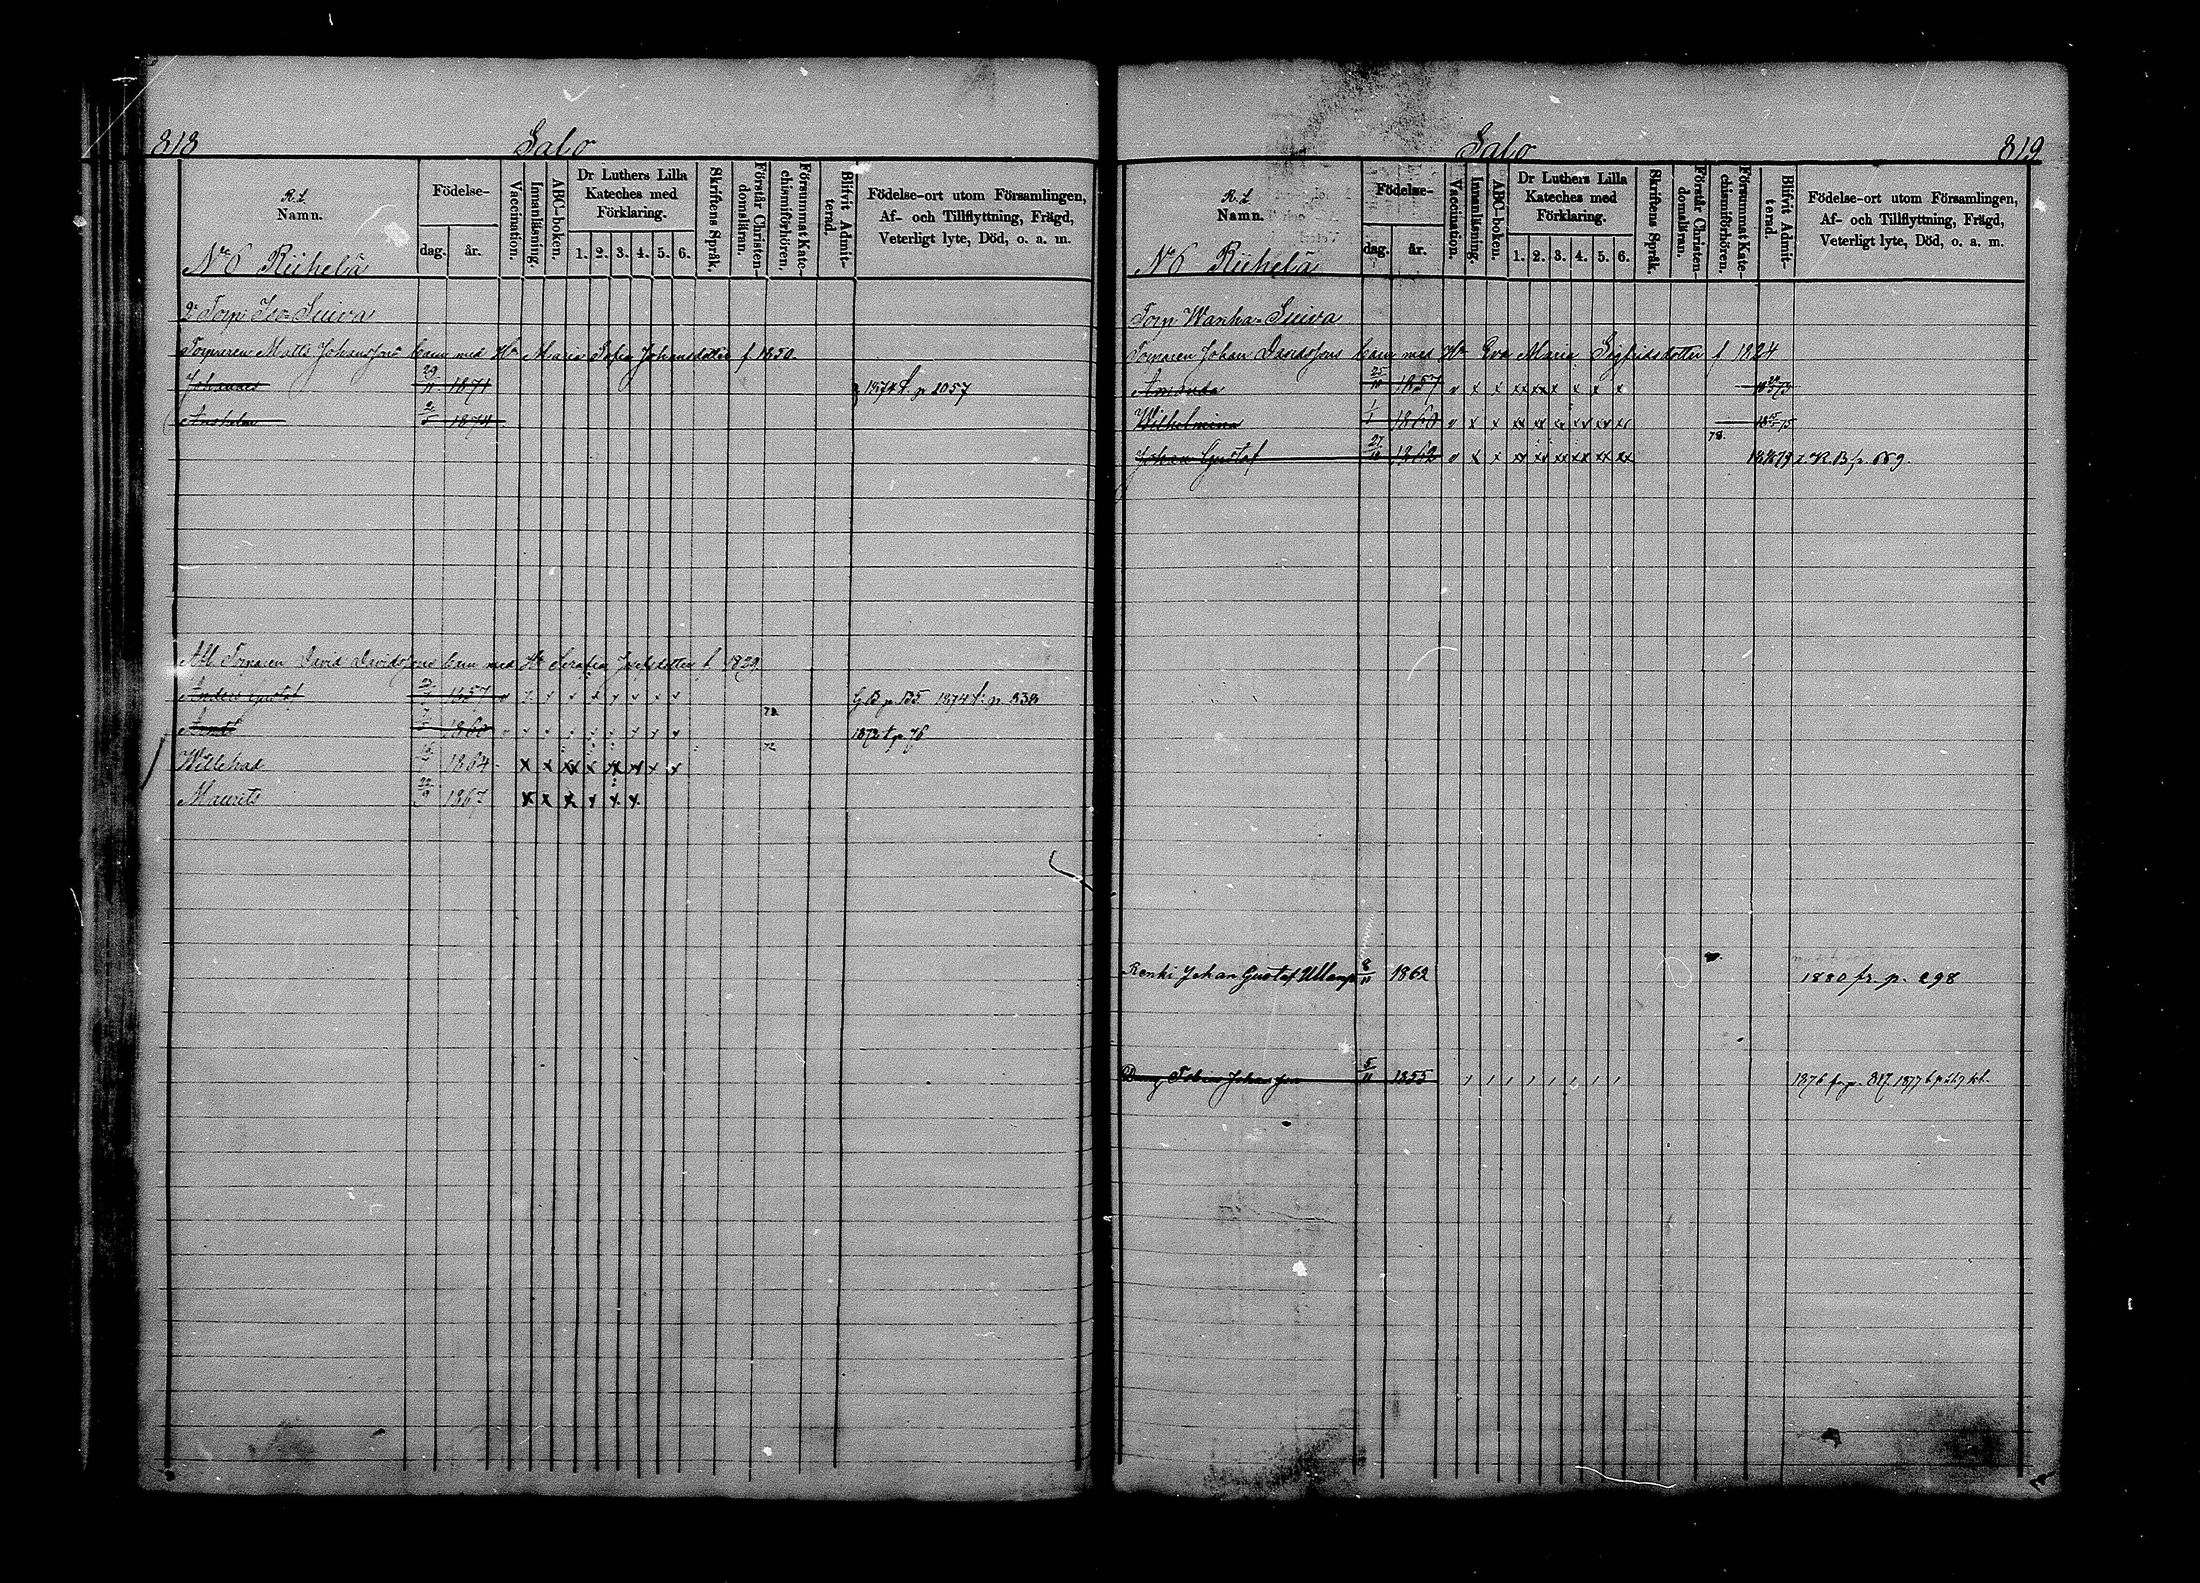 818 Salo
R. S.
Namn.
Födelse-
dag. år.
Vaccination.
Innanläsning.
ABC-boken.
Dr Luthers Lilla
Kateches med
Förklaring.
1. 2. 3. 4. 5. 6.
Skriftens Språk.
Förstår Christen-
domsläran.
Försummat Kate-
chismiförhören.
Blifvit Admit-
terad.
Födelse-ort utom Församlingen,
Af- och Tillflyttning, Frägd,
Veterligt lyte, Död, o. a. m.
No 6 Riihelä
Torp Iso-Suiva
Torparen Matts Johanssons barn med Hu Maria Sofia Johansdotter f 1850.
Johannes 29/11 1871 1874 t. p 1057
Anshelm 1874
Torparen David Davidssons barn med Hu Serafia Josefsdotter f 1829.
Anders Gustaf 1857 v x x x x x x x x G B p. 135. 1874 t. p 838
1860 x x x x x x x x 72. 1872 t p 76
Willehad 1864 x x xx x xx xx x x 72
Maurits 22/9 1867 x x x x x x
Salo 819
R. S.
Namn.
Födelse-
dag. år.
Vaccination.
Innanläsning.
ABC-boken.
Dr Luthers Lilla
Kateches med
Förklaring.
1. 2. 3. 4. 5. 6.
Skriftens Språk.
Förstår Christen-
domsläran.
Försummat Kate-
chismiförhören.
Blifvit Admit-
terad.
Födelse-ort utom Församlingen,
Af- och Tillflyttning, Frägd,
Veterligt lyte, Död, o. a. m.
No 6 Riihelä
Torp Wanha-Suiva
Torparen Johan Davidssons barn med Hu Eva Maria Sigfridsdotter f 1824
Amanda 25/10 1857 v x x xx xx x x x x
Wilhelmina 1/1 1860 v x x xx xx xx xx xx xx
Johan Gustaf 27/10 1862 v x x xx xx xx xx xx xx 78.
Renki Johan Gustaf 8/11 1862 1880 fr. p. 298
Dreng Tobias Johansson 5/11 1855 1876 fr p. 817. 1877 t. p